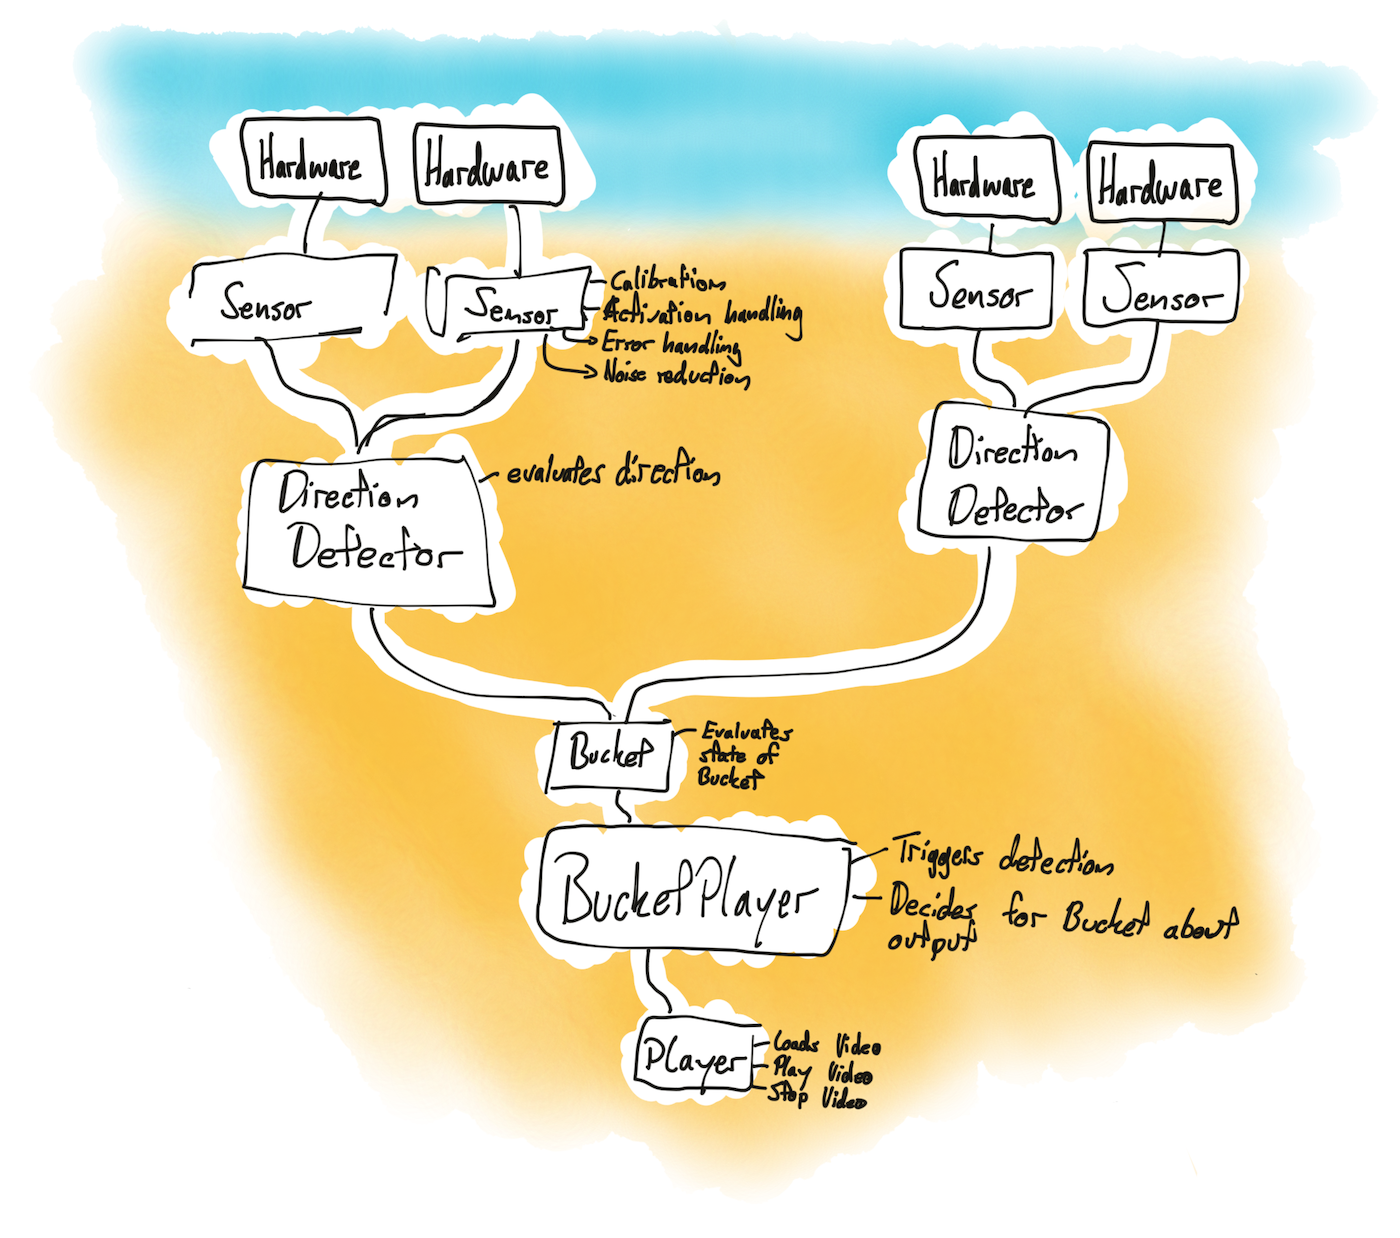 Hardware
Hardware
Hardware
Hardware
Sensor
Sensor
Calibration
Activation handling
Error handling
Noise reduction
Sensor
Sensor
Direction
Detector
evaluates direction
Direction
Detector
Bucket
Evaluates
state of
Bucket
BucketPlayer
Triggers detection
Decides for Bucket about
output
Player
Loads Video
Play Video
Stop Video